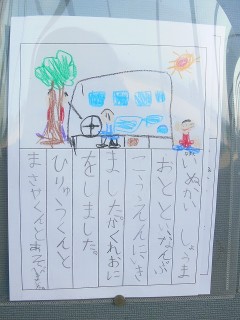 いぬかい しょうま
おとといなんぶ
こうえんにいき
ました。かくれおに
をしました。
ひりゅうくんと
まさやくんとあそび